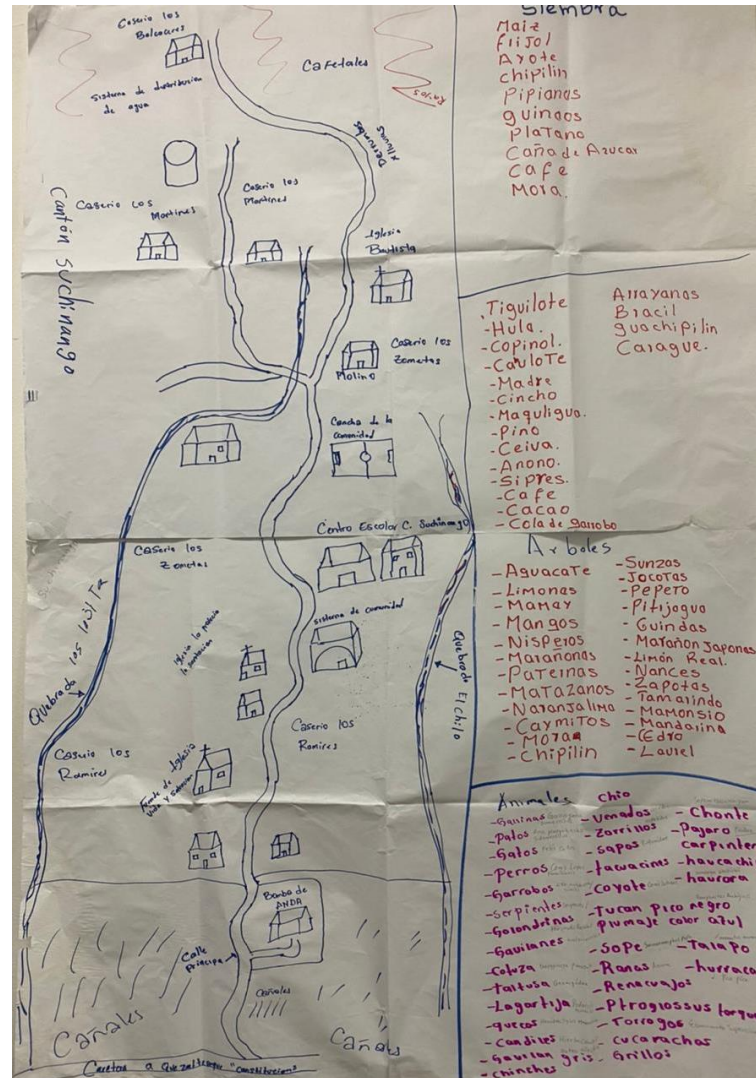 Caserio los
Balcoares
Sistema de distribucion
de agua
Cafetales
Rallos
Derrumbes
Caserio los
Martines
Caserio los
Martines
Cantón Suchinango
Iglesia
Bautista
Caserio los
Zometas
Molino
Cancha de la
comunidad
Centro Escolar C. Suchinango
Caserio los
Zometas
sistema de comunidad
Quebrada los
Quebrada El chilo
Caserio los
Ramires
Caserio los
Ramires
Fuente de Iglesia
vida y salvacion
Bomba de
ANDA
Calle
Principal
cañales
Cañales
Cañales
Carretera a Quezaltepeque "constitucion"
Siembra
Maiz
Frijol
Ayote
chipilin
Pipianas
guineos
Platano
Caña de Azucar
Cafe
Mora.
Tiguilote
-Hula.
-Copinol.
-Caulote
-Madre
-Cincho
-Maquligua.
-Pino
-Ceiva.
-Anono.
-Sipres.
-Cafe
-Cacao
-Cola de garrobo
Arrayanos
Bracil
guachipilin
Carague.
Arboles
-Aguacate
-Limonas
-Mamay
-Mangos
-Nisperos
-Marañonas
-Paternas
-Matazanos
-Naranjalima
-Caymitos
-Moran
-Chipilin
-Sunzas
-Jocotas
-Pepeto
-Pitijogua
-Guindas
-Marañon Japones
-Limón Real.
-Nances
-Zapotas
-Tamarindo
-Mamonsio
-Mandarina
-Cedro
-Laurel
Animales
-Gallinas
-Patos
-Gatos
-Perros
-Garrobos
-Serpientes
-Golondrinas
-Gavilanes
-Cotuza
-taltusa
-Lagartija
-quecos
-Candiles
-Gavilan gris
-chinches
Chio
-Venados
-Zorrillos
-Sapos
-tacuacines
-Coyote
-Tucan pico negro
plumaje color azul
-Sope
-Ranas
-Renacuajos
-Ptroglossus torqua
-Torogos
-cucarachas
-Grillos
-Chonte
-Pajaro
carpinter
-haucachi
-haurora
-Talapo
-hurraca